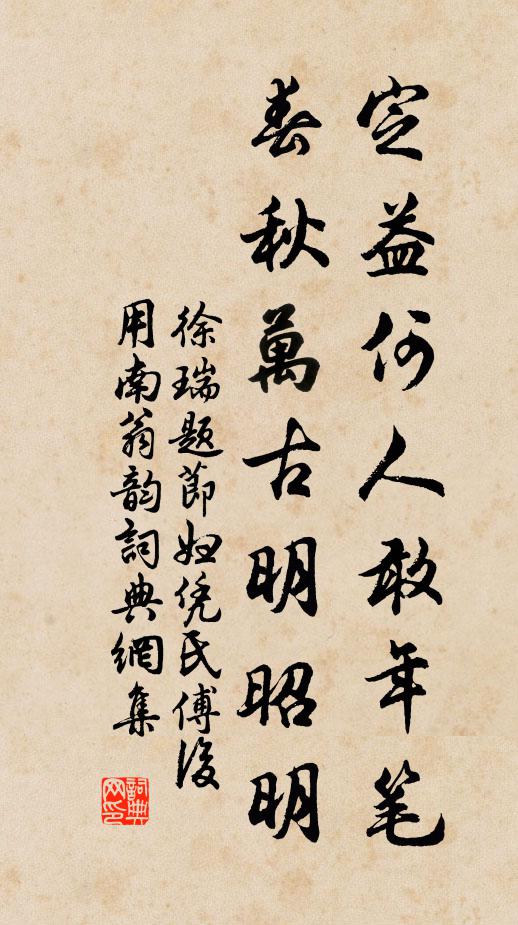 定益何人敢年笔
春秋萬古明昭明
徐瑞题節妇凭氏傅後
用南翁韵詞典網集
詞典网印